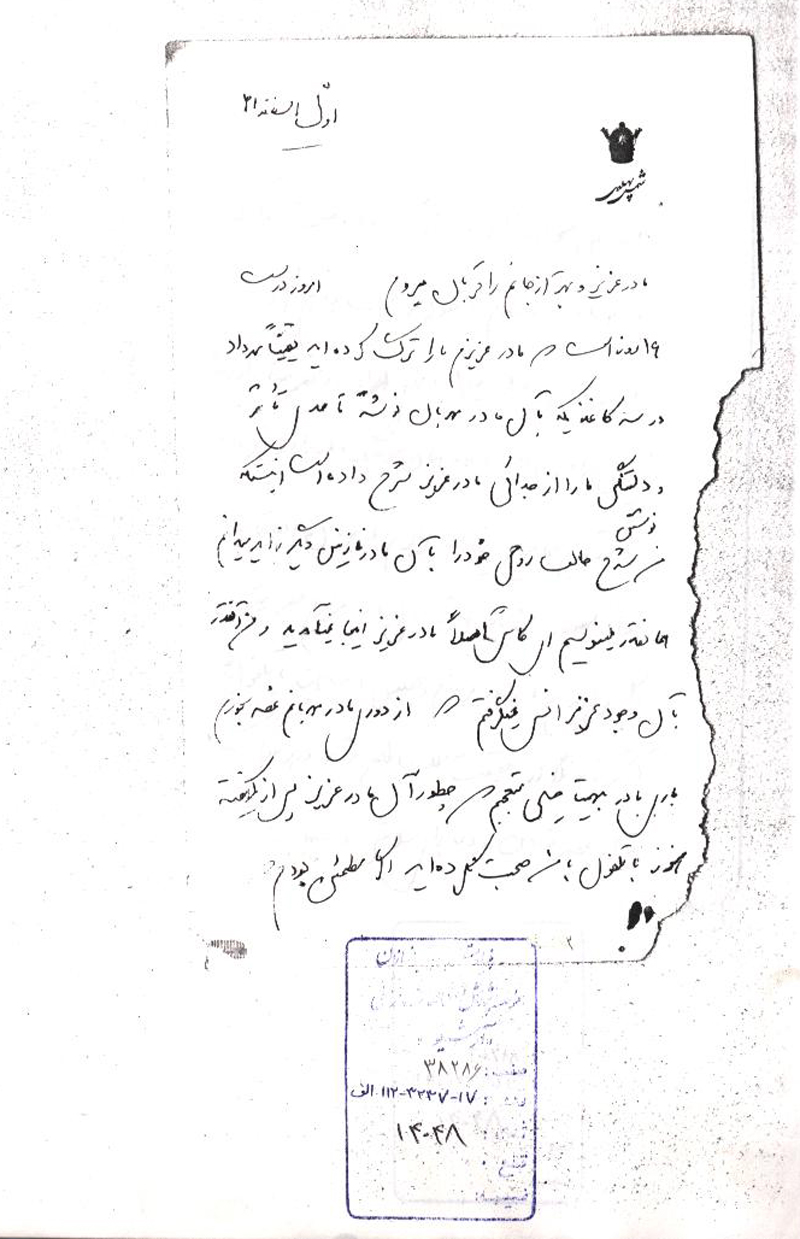 اول اسفند ۲۱
شمس پهلوی
مادر عزیز و بهتر از جانم را قربان میروم امروز درست
۱۶ روز است که مادر عزیزم ما را ترک کرده‌اید یقیناً مهرداد
در سه کاغذیکه بآن مادر مهربان نوشته تا حدی تأثر
و دلتنگی ما را از جدائی مادر عزیز شرح داده است اینستکه
نوشتن
من شرح حالت روحی خود را بآن مادر نازنین دیگر زاید میدانم
همانقدر مینویسم ای کاش اصلاً مادر عزیز اینجا نمیآمدید و من آنقدر
بآن وجود عزیز انس نمیگرفتم که از دوری مادر مهربانم غصه بخورم
باری مادر بینهایت متعجبم که چطور آن مادر عزیز پس از یکهفته
هنوز با تلفون با من صحبت نکرده‌اید اگر مطمئن بودم
۲
۳۸۲۸۶
۱۷-۳۲۳۷-۱۱۲ الف
۱۴۰۴۸